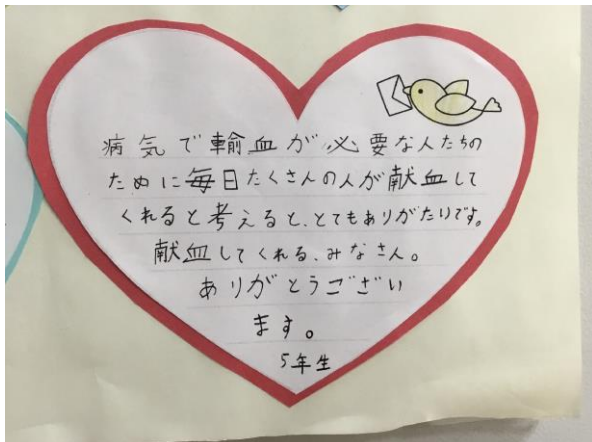 病気で輸血が必要な人たちの
ために毎日たくさんの人が献血して
くれると考えると、とてもありがたいです。
献血してくれる、みなさん。
ありがとうござい
ます。
5年生